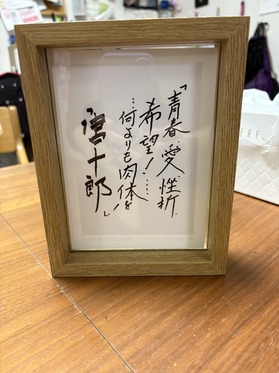 「青春、愛、性折、
希望！……
…何よりも肉体を！
『唐十郎』」